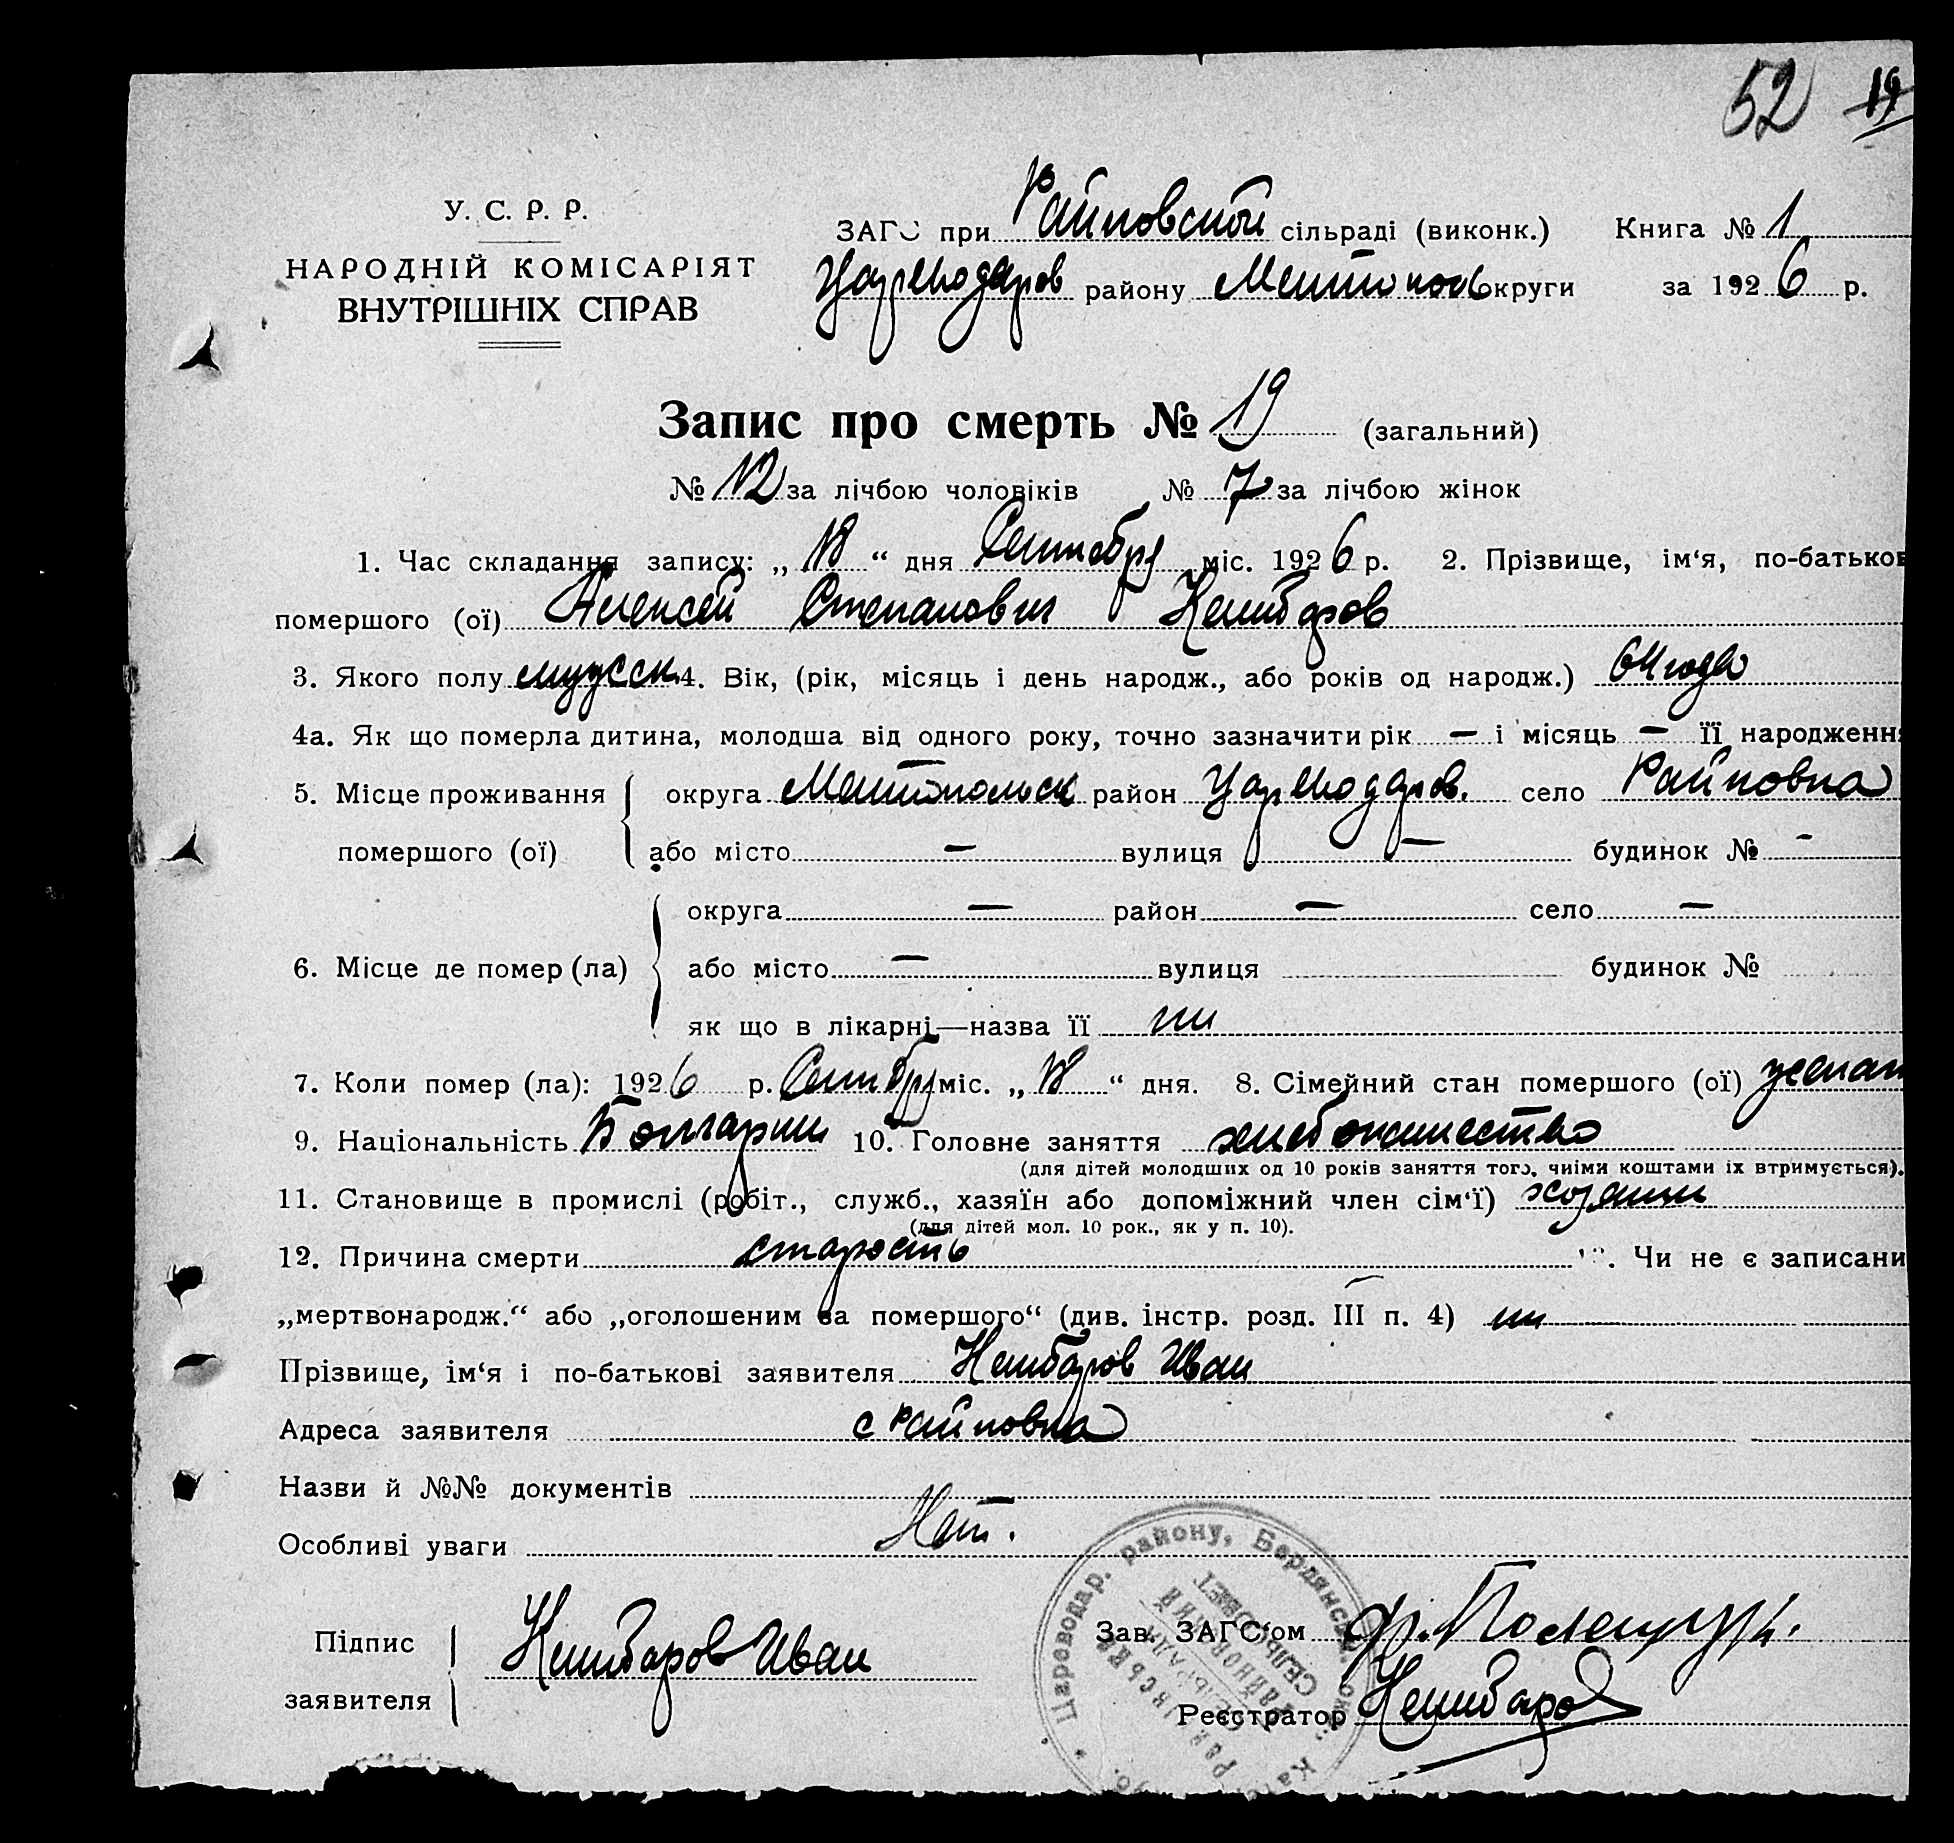 52 19
У. С. Р. Р.
НАРОДНІЙ КОМІСАРІЯТ
ВНУТРІШНІХ СПРАВ
ЗАГС при Райновской сільраді (виконк.) Книга № 1
Цареводаров району Мелитополь округи за 1926 р.
Запис про смерть № 19 (загальний)
№ 12 за лічбою чоловіків № 7 за лічбою жінок
1. Час складання запису: „18“ дня Сентебру міс. 1926 р. 2. Прізвище, ім‘я, по-батьков
помершого (ої) Алексей Степанович
3. Якого полу мужск 4. Вік, (рік, місяць і день народж., або років од народж.) 64 года
4а. Як що померла дитина, молодша від одного року, точно зазначити рік — і місяць — її народженн
5. Місце проживання округа Мелитопольск район Цареводаров. село Райновка
помершого (ої) або місто — вулиця — будинок № -
округа — район — село —
6. Місце де помер (ла) або місто — вулиця будинок №
як що в лікарні—назва її ни
7. Коли помер (ла): 1926 р. Сентебру міс. „18“ дня. 8. Сімейний стан помершого (ої) женат
9. Національність Болгарин 10. Головне заняття хлебопашество
(для дітей молодших од 10 років заняття того, чиїми коштами їх втримується).
11. Становище в промислі (робіт., служб., хазяїн або допоміжний член сім‘ї) хозяин
(для дітей мол. 10 рок., як у п. 10).
12. Причина смерти старость Чи не є записани
„мертвонародж.“ або „оголошеним за помершого“ (див. інстр. розд. III п. 4) ни
Прізвище, ім‘я і по-батькові заявителя Иван
Адреса заявителя с Райновка
Назви й №№ документів
Особливі уваги Нет.
Підпис
заявителя Иван
Зав. ЗАГС‘ом
Реєстратор
Цареводар. району, Бердянськ. окр.
РАЙНОВСКИЙ
СЕЛЬСОВЕТ